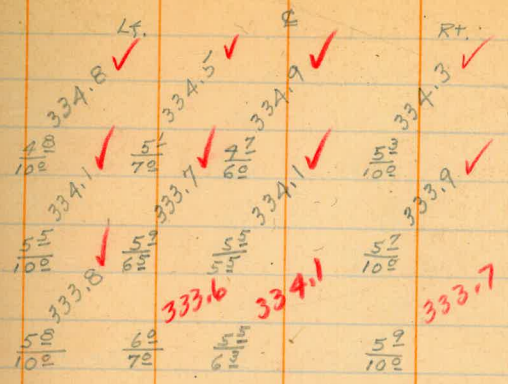 Lt. ℄ Rt.
334.8 ✓ 334.5 ✓ 334.9 ✓ 334.3 ✓
4⁸/10⁰ 5¹/7⁰ 4⁷/6⁰ 5³/10⁰
334.1 ✓ 333.7 ✓ 334.1 ✓ 333.9 ✓
5⁵/10⁰ 5⁹/6⁵ 5⁵/5⁵ 5⁷/10⁰
333.8 ✓ 333.6 334.1 333.7
5⁸/10⁰ 6⁰/7⁰ 5⁵ 5⁹/10⁰